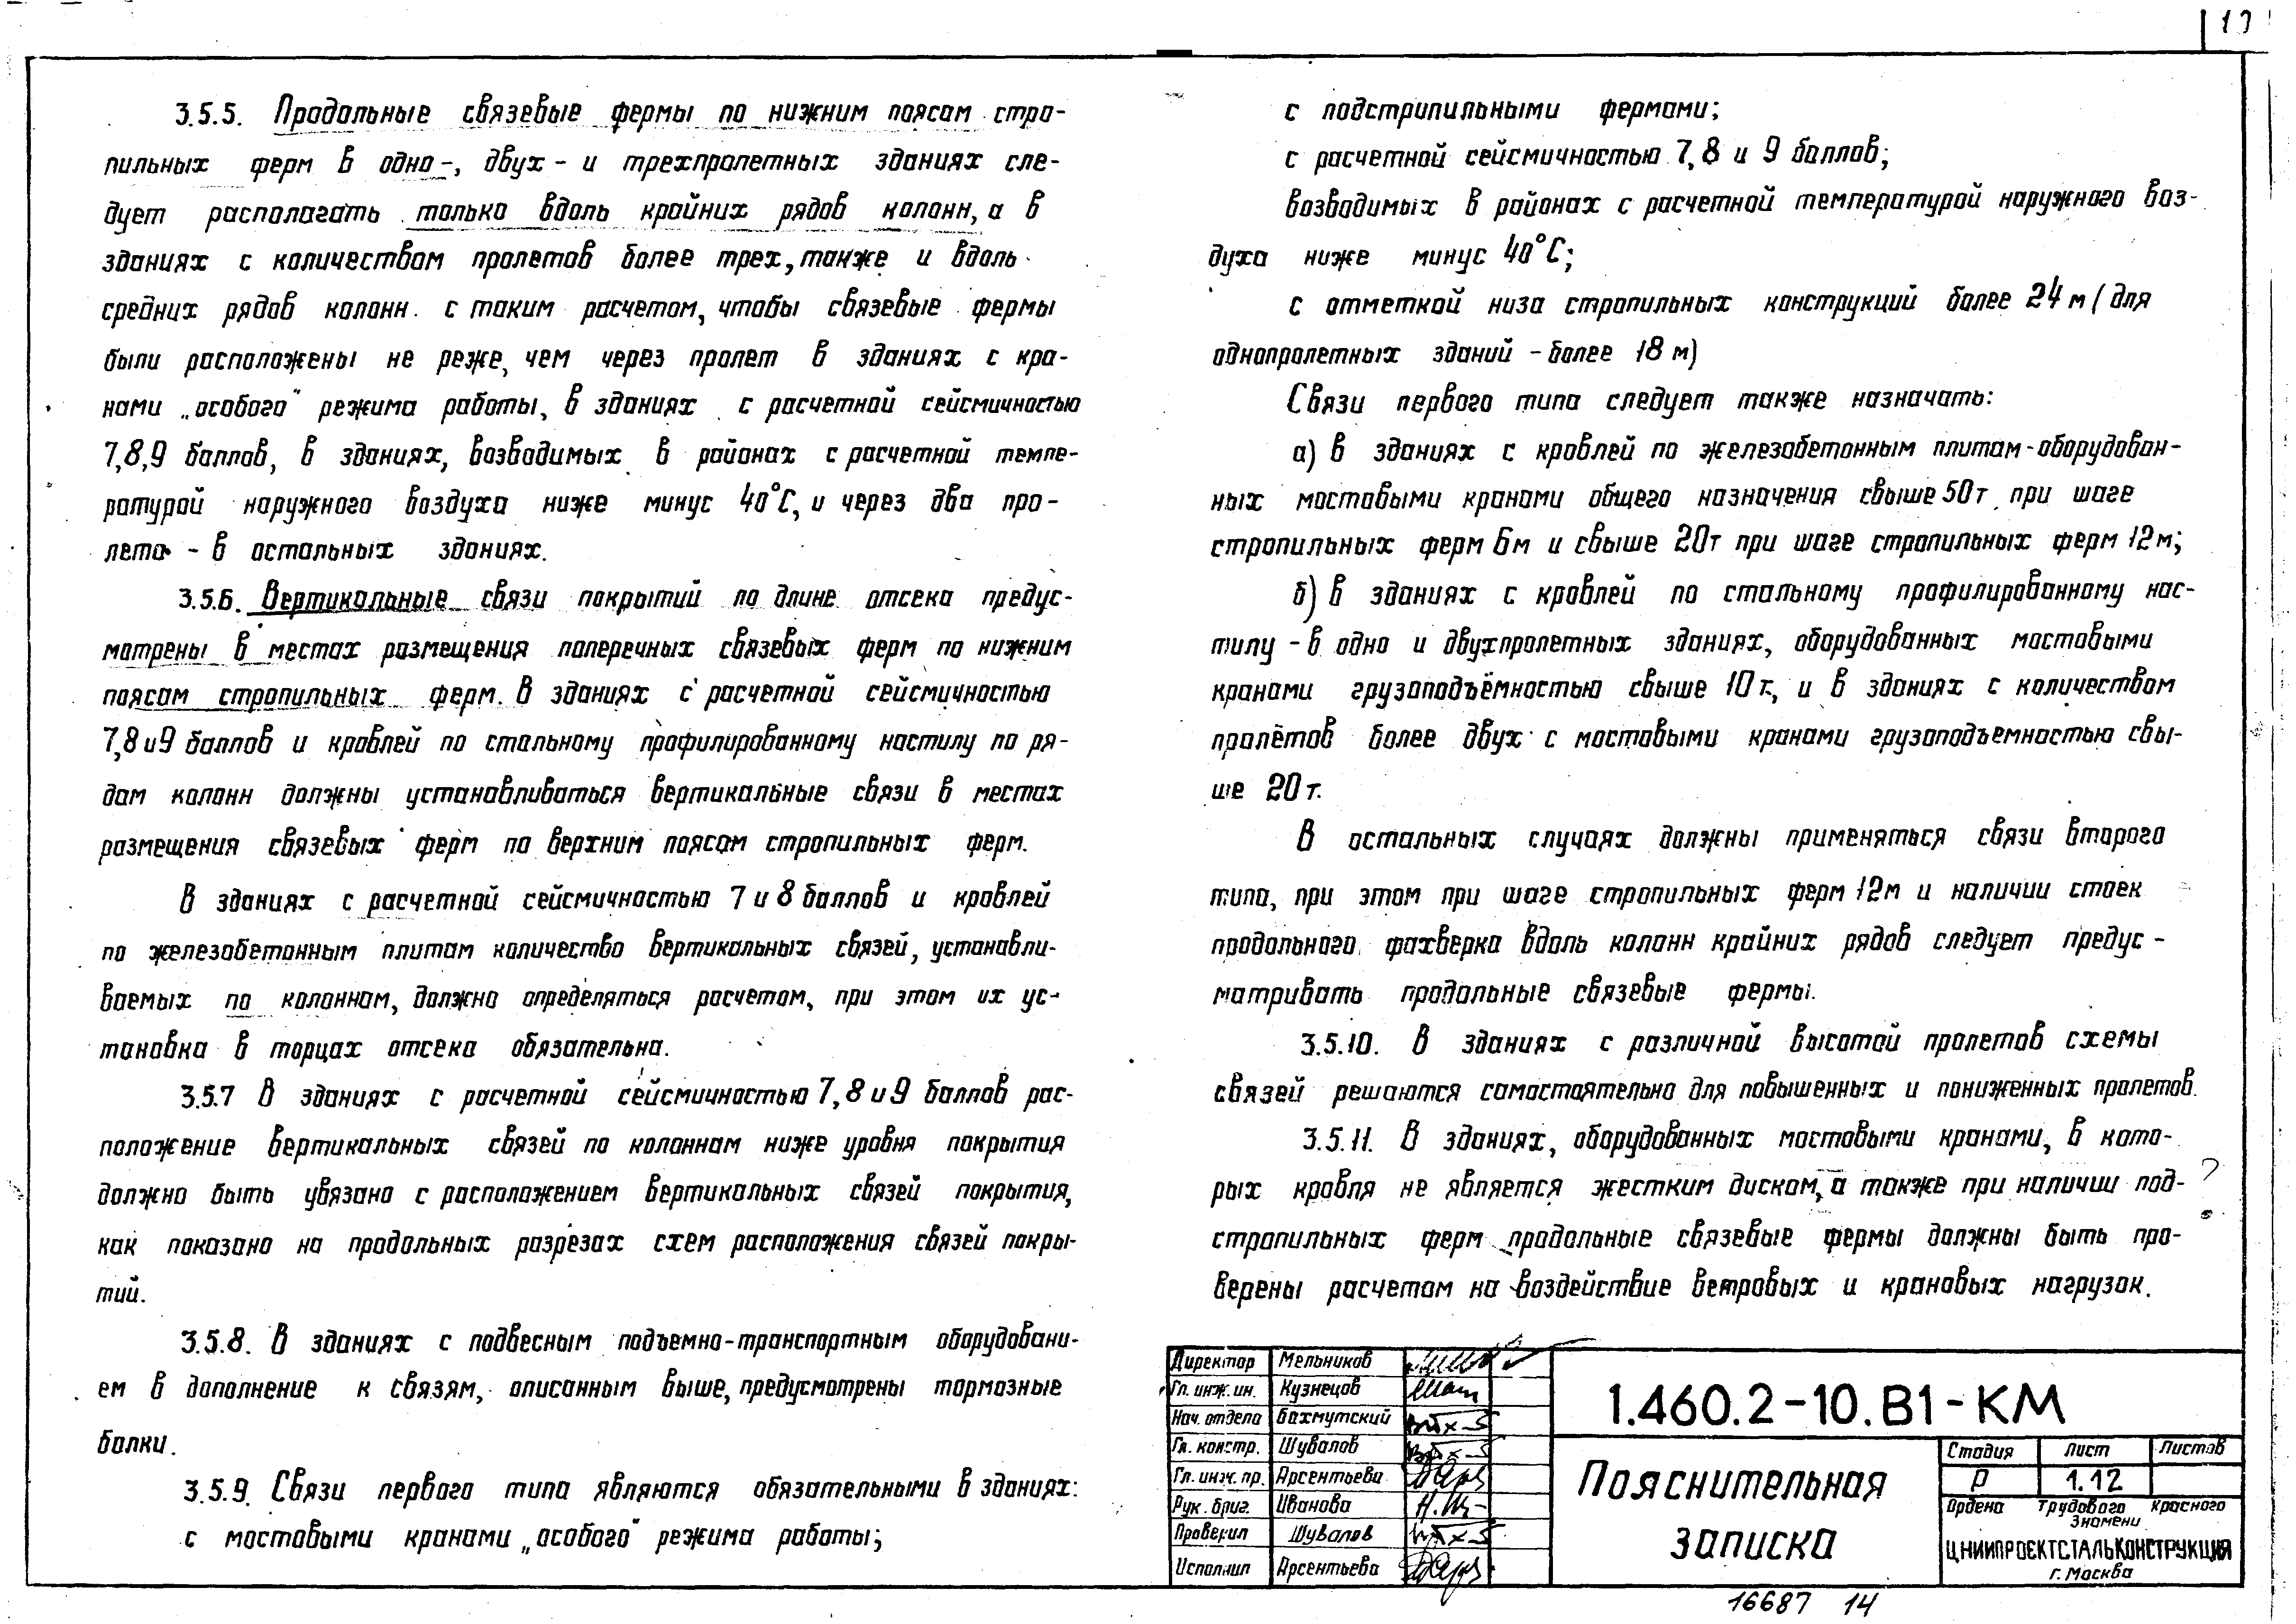 3.5.5. Продольные связевые фермы по нижним поясам стро-
пильных ферм в одно-, двух- и трехпролетных зданиях сле-
дует располагать только вдоль крайних рядов колонн, а в
зданиях с количеством пролетов более трех, также и вдоль
средних рядов колонн с таким расчетом, чтобы связевые фермы
были расположены не реже, чем через пролет в зданиях с кра-
нами „особого" режима работы, в зданиях с расчетной сейсмичностью
7,8,9 баллов, в зданиях, возводимых в районах с расчетной темпе-
ратурой наружного воздуха ниже минус 40°С, и через два про-
лета - в остальных зданиях.
3.5.6. Вертикальные связи покрытий по длине отсека предус-
мотрены в местах размещения поперечных связевых ферм по нижним
поясам стропильных ферм. В зданиях с расчетной сейсмичностью
7,8 и 9 баллов и кровлей по стальному профилированному настилу по ря-
дам колонн должны устанавливаться вертикальные связи в местах
размещения связевых ферм по верхним поясам стропильных ферм.
В зданиях с расчетной сейсмичностью 7 и 8 баллов и кровлей
по железобетонным плитам количество вертикальных связей, устанавли-
ваемых по колоннам, должно определяться расчетом, при этом их ус-
тановка в торцах отсека обязательна.
3.5.7 В зданиях с расчетной сейсмичностью 7,8 и 9 баллов рас-
положение вертикальных связей по колоннам ниже уровня покрытия
должно быть увязано с расположением вертикальных связей покрытия,
как показано на продольных разрезах схем расположения связей покры-
тий.
3.5.8. В зданиях с подвесным подъемно-транспортным оборудовани-
ем в дополнение к связям, описанным выше, предусмотрены тормозные
балки.
3.5.9. Связи первого типа являются обязательными в зданиях:
с мостовыми кранами „особого" режима работы;
с подстропильными фермами;
с расчетной сейсмичностью 7,8 и 9 баллов;
возводимых в районах с расчетной температурой наружного воз-
духа ниже минус 40°С;
с отметкой низа стропильных конструкций более 24 м (для
однопролетных зданий - более 18 м)
Связи первого типа следует также назначать:
а) в зданиях с кровлей по железобетонным плитам - оборудован-
ных мостовыми кранами общего назначения свыше 50т при шаге
стропильных ферм 6м и свыше 20т при шаге стропильных ферм 12м;
б) в зданиях с кровлей по стальному профилированному нас-
тилу - в одно и двухпролетных зданиях, оборудованных мостовыми
кранами грузоподъёмностью свыше 10 т., и в зданиях с количеством
пролётов более двух с мостовыми кранами грузоподъемностью свы-
ше 20 т.
В остальных случаях должны применяться связи второго
типа, при этом при шаге стропильных ферм 12м и наличии стоек
продольного фахверка вдоль колонн крайних рядов следует предус-
матривать продольные связевые фермы.
3.5.10. В зданиях с различной высотой пролетов схемы
связей решаются самостоятельно для повышенных и пониженных пролетов.
3.5.11. В зданиях, оборудованных мостовыми кранами, в кото-
рых кровля не является жестким диском, а также при наличии под-
стропильных ферм продольные связевые фермы должны быть про-
верены расчетом на воздействие ветровых и крановых нагрузок.
?
Директор Мельников
Гл. инж. ин. Кузнецов
Нач. отдела Бахмутский
Гл. констр. Шувалов
Гл. инж. пр. Арсентьева
Рук. бриг. Иванова
Проверил Шувалов
Исполнил Арсентьева
1.460.2-10.В1-КМ
Пояснительная
записка
Стадия Лист Листов
Р 1.12
Ордена Трудового Красного
Знамени
ЦНИИПРОЕКТСТАЛЬКОНСТРУКЦИЯ
г. Москва
16687 14